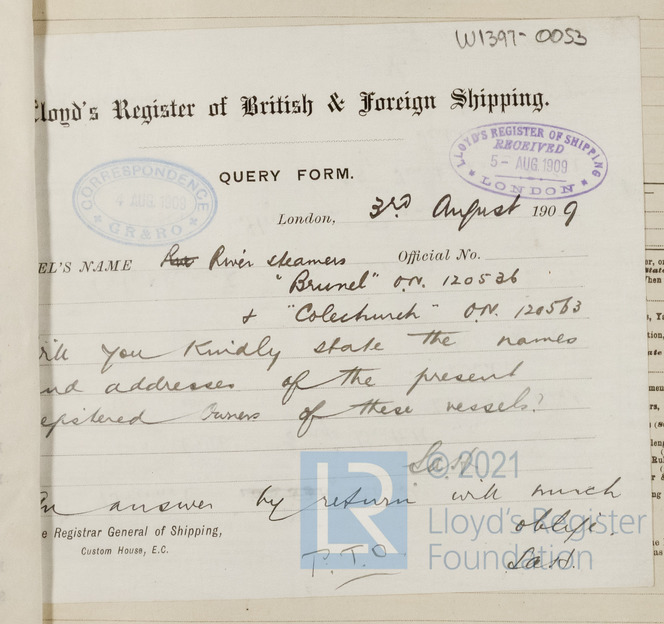 W1397-0053
Lloyd's Register of British & Foreign Shipping.
LLOYD'S REGISTER OF SHIPPING
RECEIVED
5- AUG. 1909
LONDON
CORRESPONDENCE
4 AUG. 1909
GR&RO
QUERY FORM.
London, 3rd August 1909
EL'S NAME River steamers Official No.
"Brunel" O.N. 120536
& "Colechurch" O.N. 120563
ill you Kindly state the names
nd addresses of the present
egistered Owners of these vessels?
© 2021
LR
Lloyd's Register
Foundation
An answer by return will much
oblige.
e Registrar General of Shipping,
Custom House, E.C.
P.T.O